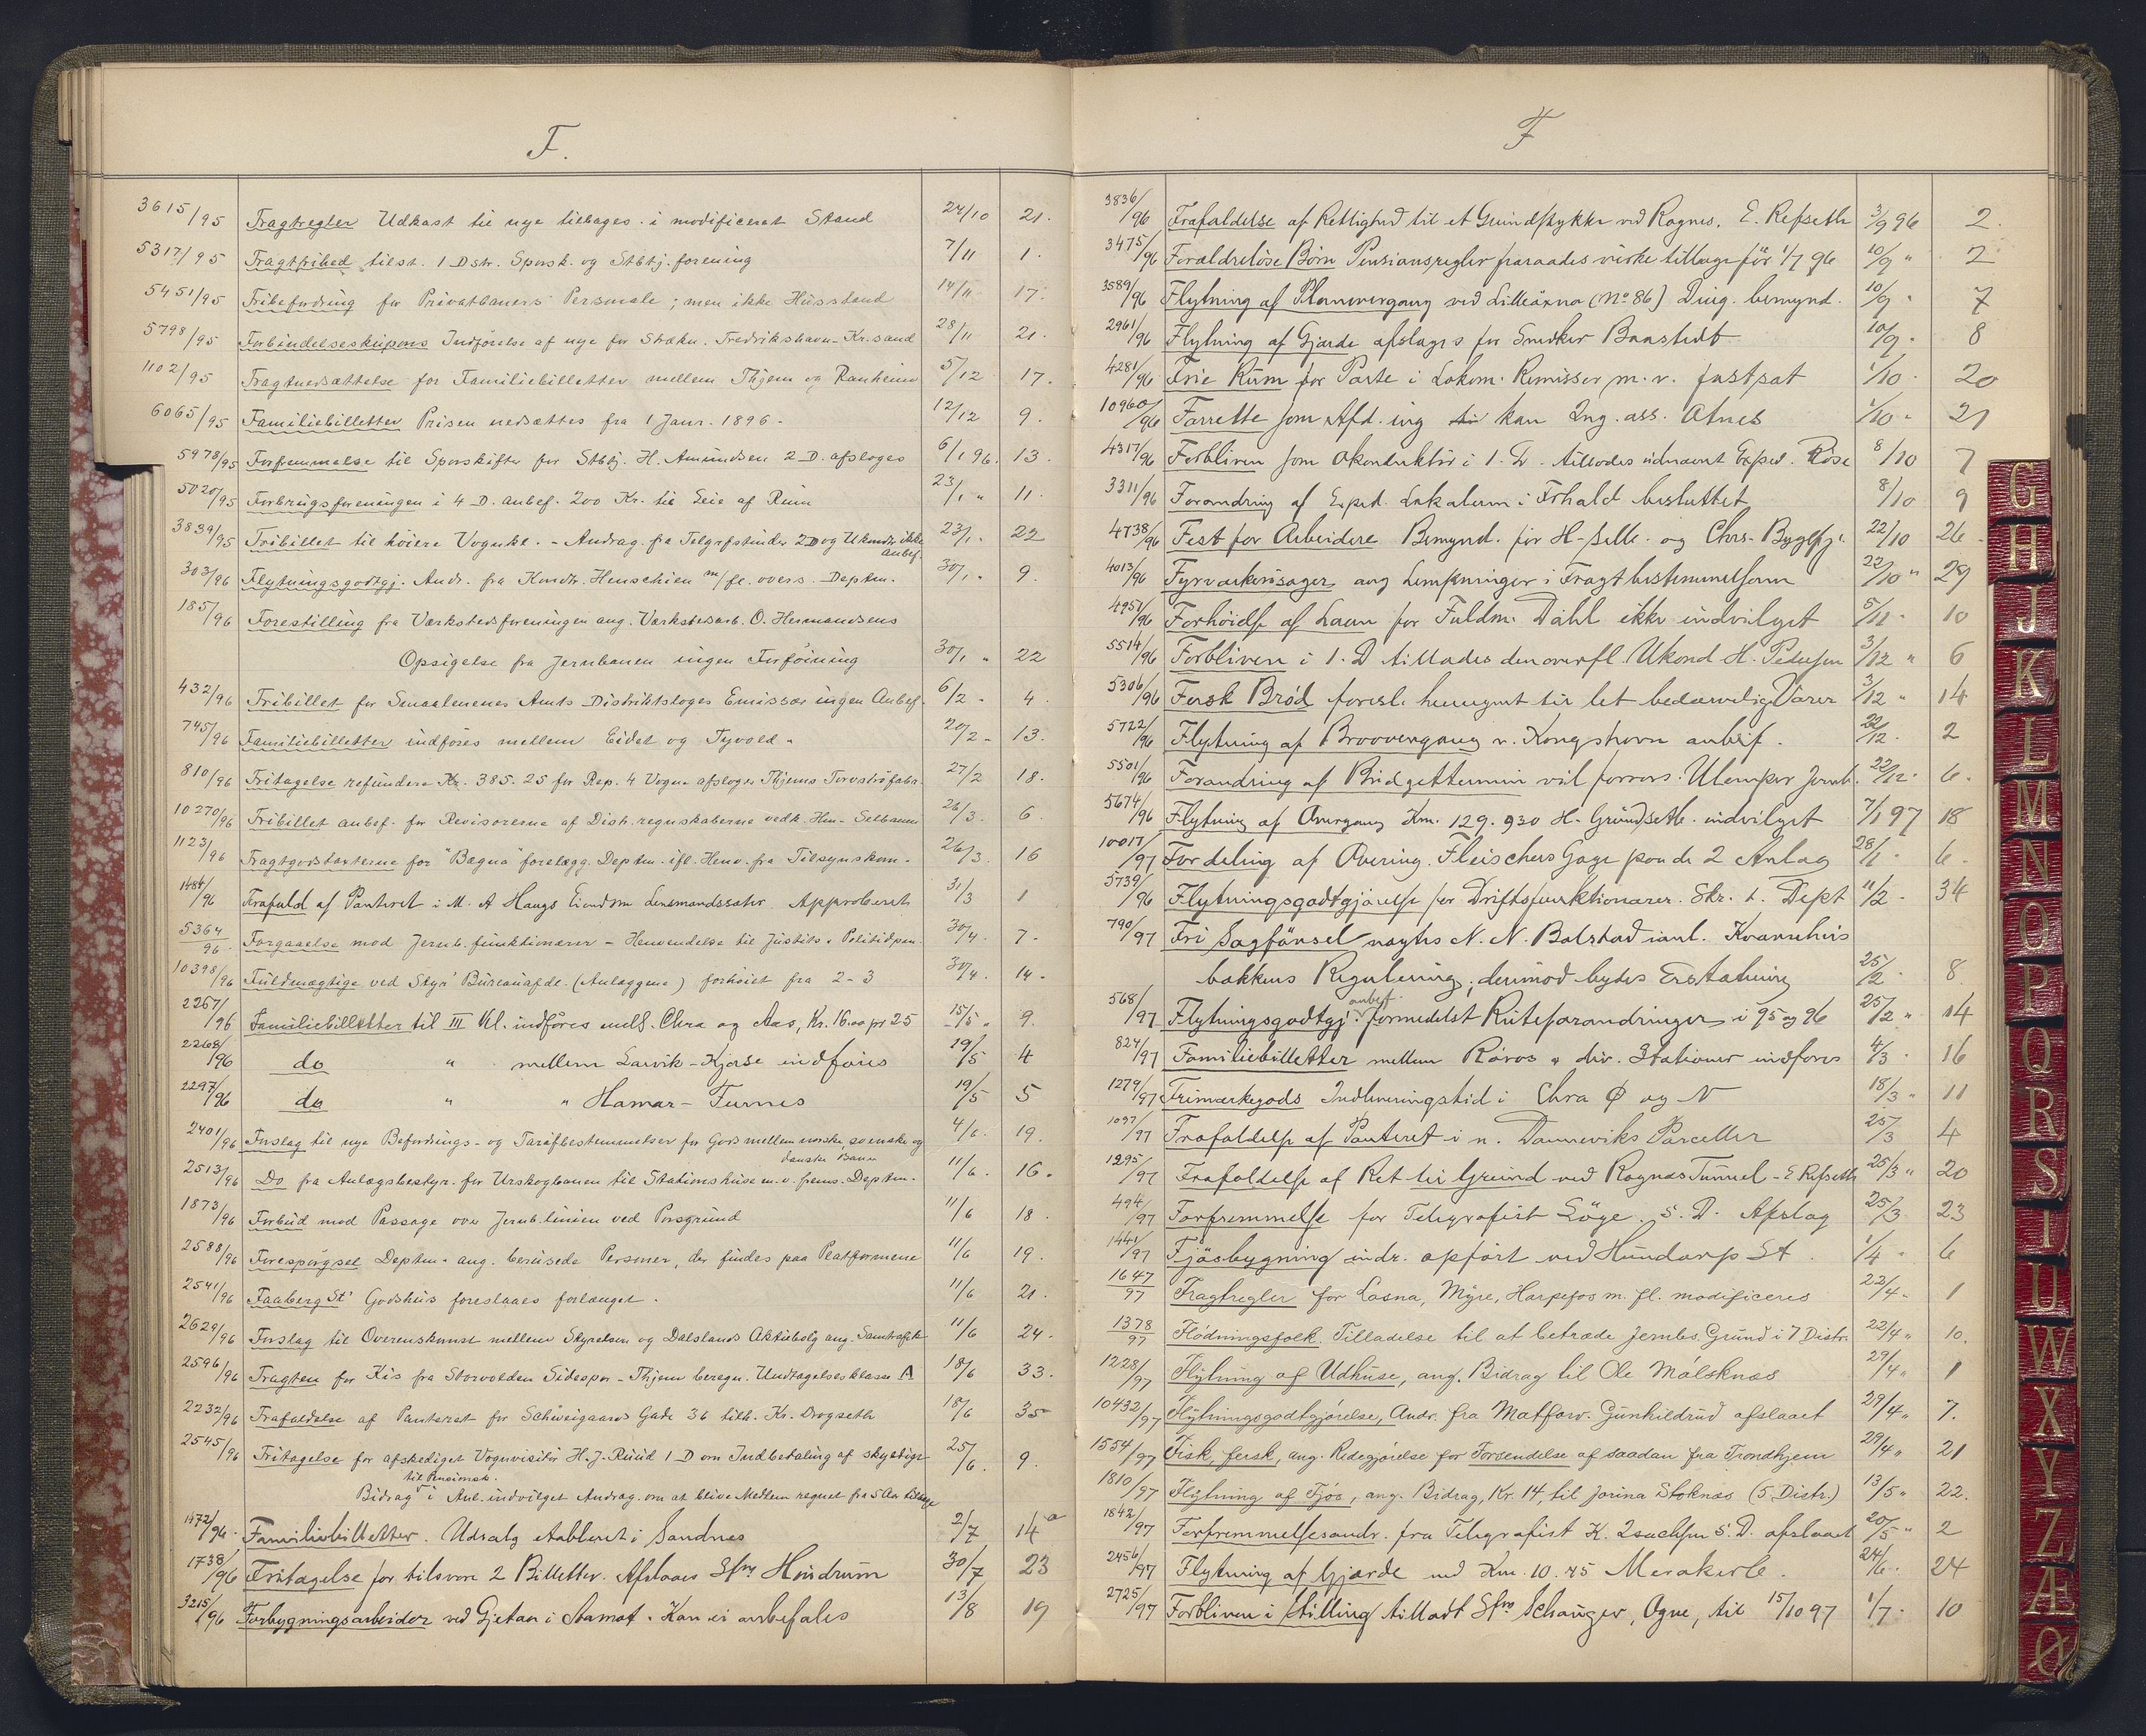 F.
3615/95 Fragtregler Udkast til nye tilbages. i modificeret Stand 24/10 21.
5317/95 Fragtfrihed tilst. 1 Dstr. Sporsk. og Stbtj. forening 7/11 1.
5451/95 Fribefordring for Privatbaners Personale; men ikke Husstand 14/11 17.
5798/95 Forbindelseskupons Indførelse af nye for Strækn. Fredrikshavn-Kr.sand 28/11 21.
1102/95 Fragtnedsættelse for Familiebilletter mellem Thjem og Ranheim 5/12 17.
6065/95 Familiebilletter Prisen nedsættes fra 1 Janr. 1896. 12/12 9.
5978/95 Forfremmelse til Sporskifter for Stbtj. H. Amundsen 2 D. afsloges 6/1 96. 13.
5020/95 Forbrugsforeningen i 4 D. anbef. 200 Kr. til Leie af Rum 23/1 " 11.
3839/95 Fribillet til høiere Vognkl. - Andrag. fra Telgrfstinder 2D og Ukondr. ikke 23/1. 22
anbef.
303/96 Flytningsgodtgj. Andr. fra Kondr. Henschien m/fl. overs. Deptm. 30/1 " 9.
185/96 Forestilling fra Værkstedsforeningen ang. Værkstedsarb. O. Hermandsens
Opsigelse fra Jernbanen ingen Forføining 30/1 " 22
432/96 Fribillet for Smaalenenes Amts Distriktsloges Emissær ingen Anbef. 6/2 - 4.
745/96 Familiebilletter indføres mellem Eidet og Tyvold. 20/2 - 13.
810/96 Fritagelse refundere Kr. 385.25 for Rep. 4 Vogne afsloges Thjems Torvstrøfabr. 27/2 18.
10270/96 Fribillet anbef. for Revisorerne af Distr. regnskaberne vedk. Hm-Selbanen 26/3. 6.
1123/96 Fragtgodstaxterne for "Bagna" forelægg. Deptm. ifl. Henv. fra Tilsynskom. 26/3. 16
1484/96 Frafald af Panteret i M. A Haugs Eiendom Lensmandssæter. Approberet 31/3 1
5364/96. Forgaaelse mod Jernb. funktionærer - Henvendelse til Justits. Politidpm. 30/4. 7.
10398/96 Fuldmægtige ved Styr' Bureauafdl. (Anlæggene) forhøiet fra 2-3 30/4. 14.
2267/96 Familiebilletter til III Kl. indføres mell. Chra og Aas, Kr. 16.00 pr 25 15/5 " 9.
2268/96 do " mellem Larvik-Kjose indføres 19/5 4
2297/96 do " " Hamar-Furnes 19/5 5
2401/96 Forslag til nye Befordrings- og Tarifbestemmelser for Gods mellem norske, svenske og 4/6. 19.
danske Baner
2513/96 Do fra Anlægsbestyr. for Urskogbanen til Stationshuse m.v. frems. Deptm. 11/6. 16.
1873/96 Forbud mod Passage over Jernb.linien ved Porsgrund 11/6 18.
2588/96 Forespørgsel Deptm. ang. berusede Personer, der findes paa Platformene 11/6 19.
2541/96 Faaberg St' Godshus foreslaaes forlænget. 11/6 21.
2629/96 Forslag til Overenskomst mellem Styrelsen og Dalslands Aktiebolg ang. Samtrafik 11/6 24.
2596/96 Fragten for Kis fra Storvolden Sidespor - Thjem beregn. Undtagelsesklasse A 18/6 33.
2232/96 Frafaldelse af Panteret for Schweigaards Gade 36 tilh. Kr. Drogseth 18/6 35
2545/96 Fritagelse for afskediget Vognvisitør H. J. Ruud 1 D om Indbetaling af skyldige 25/6. 9.
til Pensionsk.
Bidrag i Anl. indvilget Andrag. om at blive Medlem regnet fra 5 Aar tilbage
1472/96. Familiebilletter. Udsalg etableret i Sandnes 2/7 14a
1738/96 Fritagelse for tilsvare 2 Billetter. Afslaaes Stm Hundrum 30/7 23
3215/96 Forbygningsarbeider ved Gjetaa i Aamot. Kan ei anbefales 13/8 19
F
3836/96 Frafaldelse af Rettighed til et Grundstykke ved Rognes. E. Refseth 3/9 96 2.
3475/96 Forældreløse Børn Pensionsregler fraraades virke tilbage før 1/7 96 10/9 " 2
3589/96 Flytning af Planovergang ved Lilleåxna (No 86) Ding. bemynd. 10/9 " 7
2961/96 Flytning af Gjærde afslages for Snedker Baastedt 10/9. 8
4281/96 Frie Rum for Parte i Lokom. Remisser m. v. fastsat 1/10. 20
10960/96 Forrette som Afd. ing kan Ing. ass. Atnes 1/10 - 21
4317/96 Forbliven som Okonduktør i 1. D. tillodes udnævnt Exped. Röse 8/10 7
3311/96 Forandring af Exped. Lokalerne i Frhald besluttet 8/10 9
4738/96 Fest for Arbeidere Bemynd. for H-Selb. og Chrs- Byglfj. 22/10 26.
4013/96 Fyrværkerisager ang Lempninger i Fragtbestemmelserne 22/10 " 29
4951/96 Forhöielse af Løn for Fuldm. Dahl ikke indvilget 5/11. 10
5514/96 Forbliven i 1. D tillades den overfl. Ukond H. Pedersen 3/12 " 6
5306/96 Fersk Brød foresl. henregnet til let bedærvelig Varer 3/12 " 14
5722/96 Flytning af Broovergang v. Kongshavn anbef. 22/12. 2
5501/96 Forandring af Budgettermin vil forvors. Ulemper Jernb. 22/12. 6.
5674/96 Flytning af Overgang Km. 129.930 H-Grundsetb. indvilget 7/1 97 18
10017/97 Fordeling af Overing. Fleischers Gage paa de 2 Anlæg 28/1. 6.
5739/96 Flytningsgodtgjörelse for Driftsfunktionærer. Skr. t. Dept 11/2. 34
790/97 Fri Sagförsel nægtes N. N. Balstad ianl. Kvarnhus
bakkens Regulering; derimod bydes Erstatning 25/2. 8.
anbef.
568/97 Flytningsgodtgj. formedelst Ruteforandringer i 95 og 96 25/2 " 14
824/97 Familiebilletter mellem Röros & div. Stationer indføres 4/3. 16
1279/97 Frimærkegods Indleveringstid i Chra Ø og V 18/3 " 11
1097/97 Frafaldelse af Panteret i n. Danneviks Parceller 25/3 4
1295/97 Frafaldelse af Ret til Grund ved Rognæs Tunnel - E Refseth 25/3 " 20
494/97 Forfremmelse for Telegrafist Löge. 5. D. Afslag 25/3 23
1441/97 Fjösbygning indr. opført ved Hundorp St. 1/4 - 6
1647/97 Fragtregler for Losna, Myre, Harpefos m. fl. modificeres 22/4. 1
1378/97 Flødningsfolk. Tilladelse til at betræde Jernbs. Grund i 7 Distr. 22/4 " 10.
1228/97 Flytning af Udhuse, ang. Bidrag til Ole Målsknæs 29/4 " 1
10432/97 Flytningsgodtgjørelse, Andr. fra Matforv. Gunhildrud afslaaet 29/4 " 7.
1554/97 Fisk, fersk, ang. Redegjørelse for Forsendelse af saadan fra Trondhjem 29/4 " 21
1810/97 Flytning af Fjøs, ang. Bidrag, Kr. 14, til Jorina Stoknæs (5 Distr.) 13/5 " 22.
1842/97 Forfremmelsesandr. fra Telegrafist K. Isachsen 5. D. afslaaet 20/5 " 2
2456/97 Flytning af Gjærde ved Km. 10.45 Merakerb. 24/6. 24
2725/97 Forbliven i Stilling tilladt Stm Schanger, Ogne, til 15/10 97 1/7. 10
G
H
J
K
L
M
N
O
P
Q
R
S
T
U
W
X
Y
Z
Æ
Ø